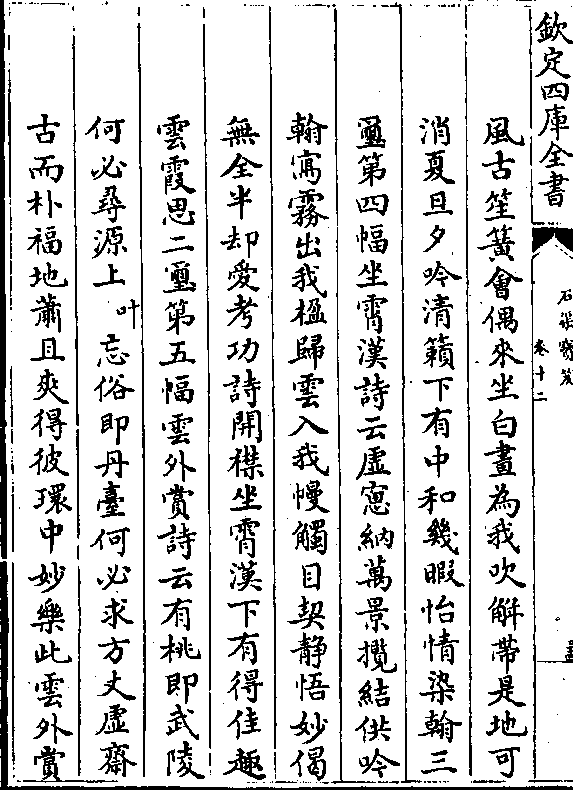 欽定四庫全書
石渠寶笈
卷十二
風古笙簧會偶來坐白晝為我吹解帶是地可
消夏旦夕吟清籟下有中和幾暇怡情染翰三
璽第四幅坐霄漢詩云虛窓納萬景攬結供吟
翰寫霧出我楹歸雲入我幔觸目契静悟妙偈
無全半却愛考功詩開襟坐霄漢下有得佳趣
雲霞思二璽第五幅雲外賞詩云有桃即武陵
何必尋源上叶忘俗即丹臺何必求方丈虛齋
古而朴福地蕭且爽得彼環中妙樂此雲外賞